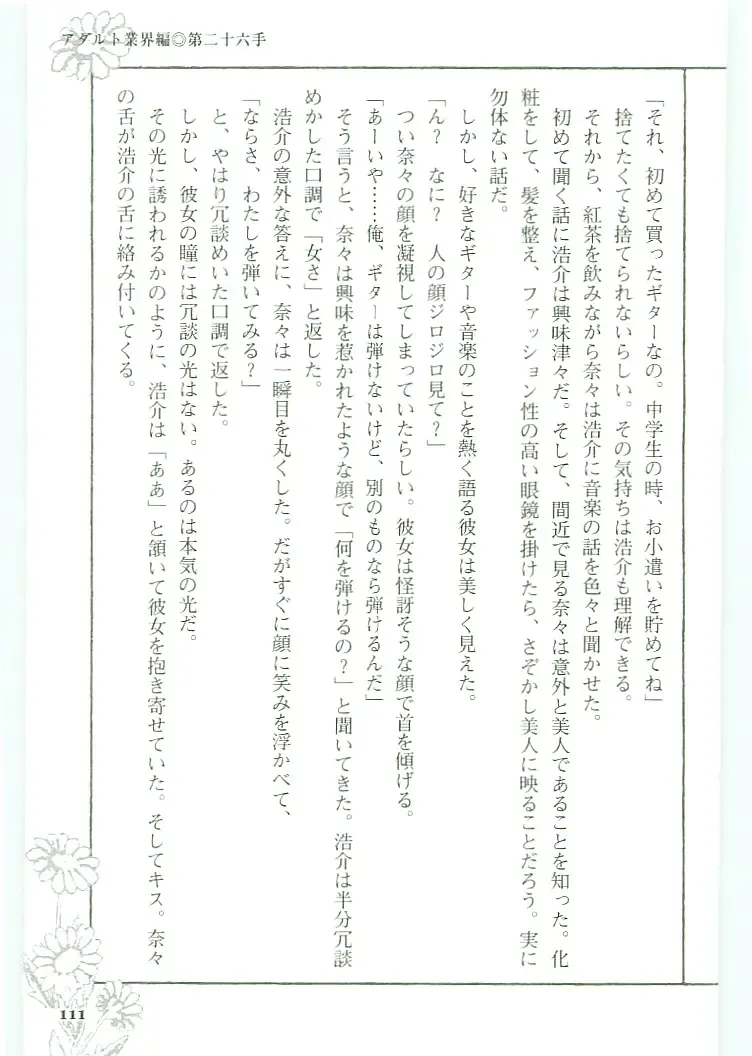 アダルト業界編◎第二十六手
「それ、初めて買ったギターなの。中学生の時、お小遣いを貯めてね」
捨てたくても捨てられないらしい。その気持ちは浩介も理解できる。
それから、紅茶を飲みながら奈々は浩介に音楽の話を色々と聞かせた。
初めて聞く話に浩介は興味津々だ。そして、間近で見る奈々は意外と美人であることを知った。化
粧をして、髪を整え、ファッション性の高い眼鏡を掛けたら、さぞかし美人に映ることだろう。実に
勿体ない話だ。
しかし、好きなギターや音楽のことを熱く語る彼女は美しく見えた。
「ん？　なに？　人の顔ジロジロ見て？」
つい奈々の顔を凝視してしまっていたらしい。彼女は怪訝そうな顔で首を傾げる。
「あーいや……俺、ギターは弾けないけど、別のものなら弾けるんだ」
そう言うと、奈々は興味を惹かれたような顔で「何を弾けるの？」と聞いてきた。浩介は半分冗談
めかした口調で「女さ」と返した。
浩介の意外な答えに、奈々は一瞬目を丸くした。だがすぐに顔に笑みを浮かべて、
「ならさ、わたしを弾いてみる？」
と、やはり冗談めいた口調で返した。
しかし、彼女の瞳には冗談の光はない。あるのは本気の光だ。
その光に誘われるかのように、浩介は「ああ」と頷いて彼女を抱き寄せていた。そしてキス。奈々
の舌が浩介の舌に絡み付いてくる。
111